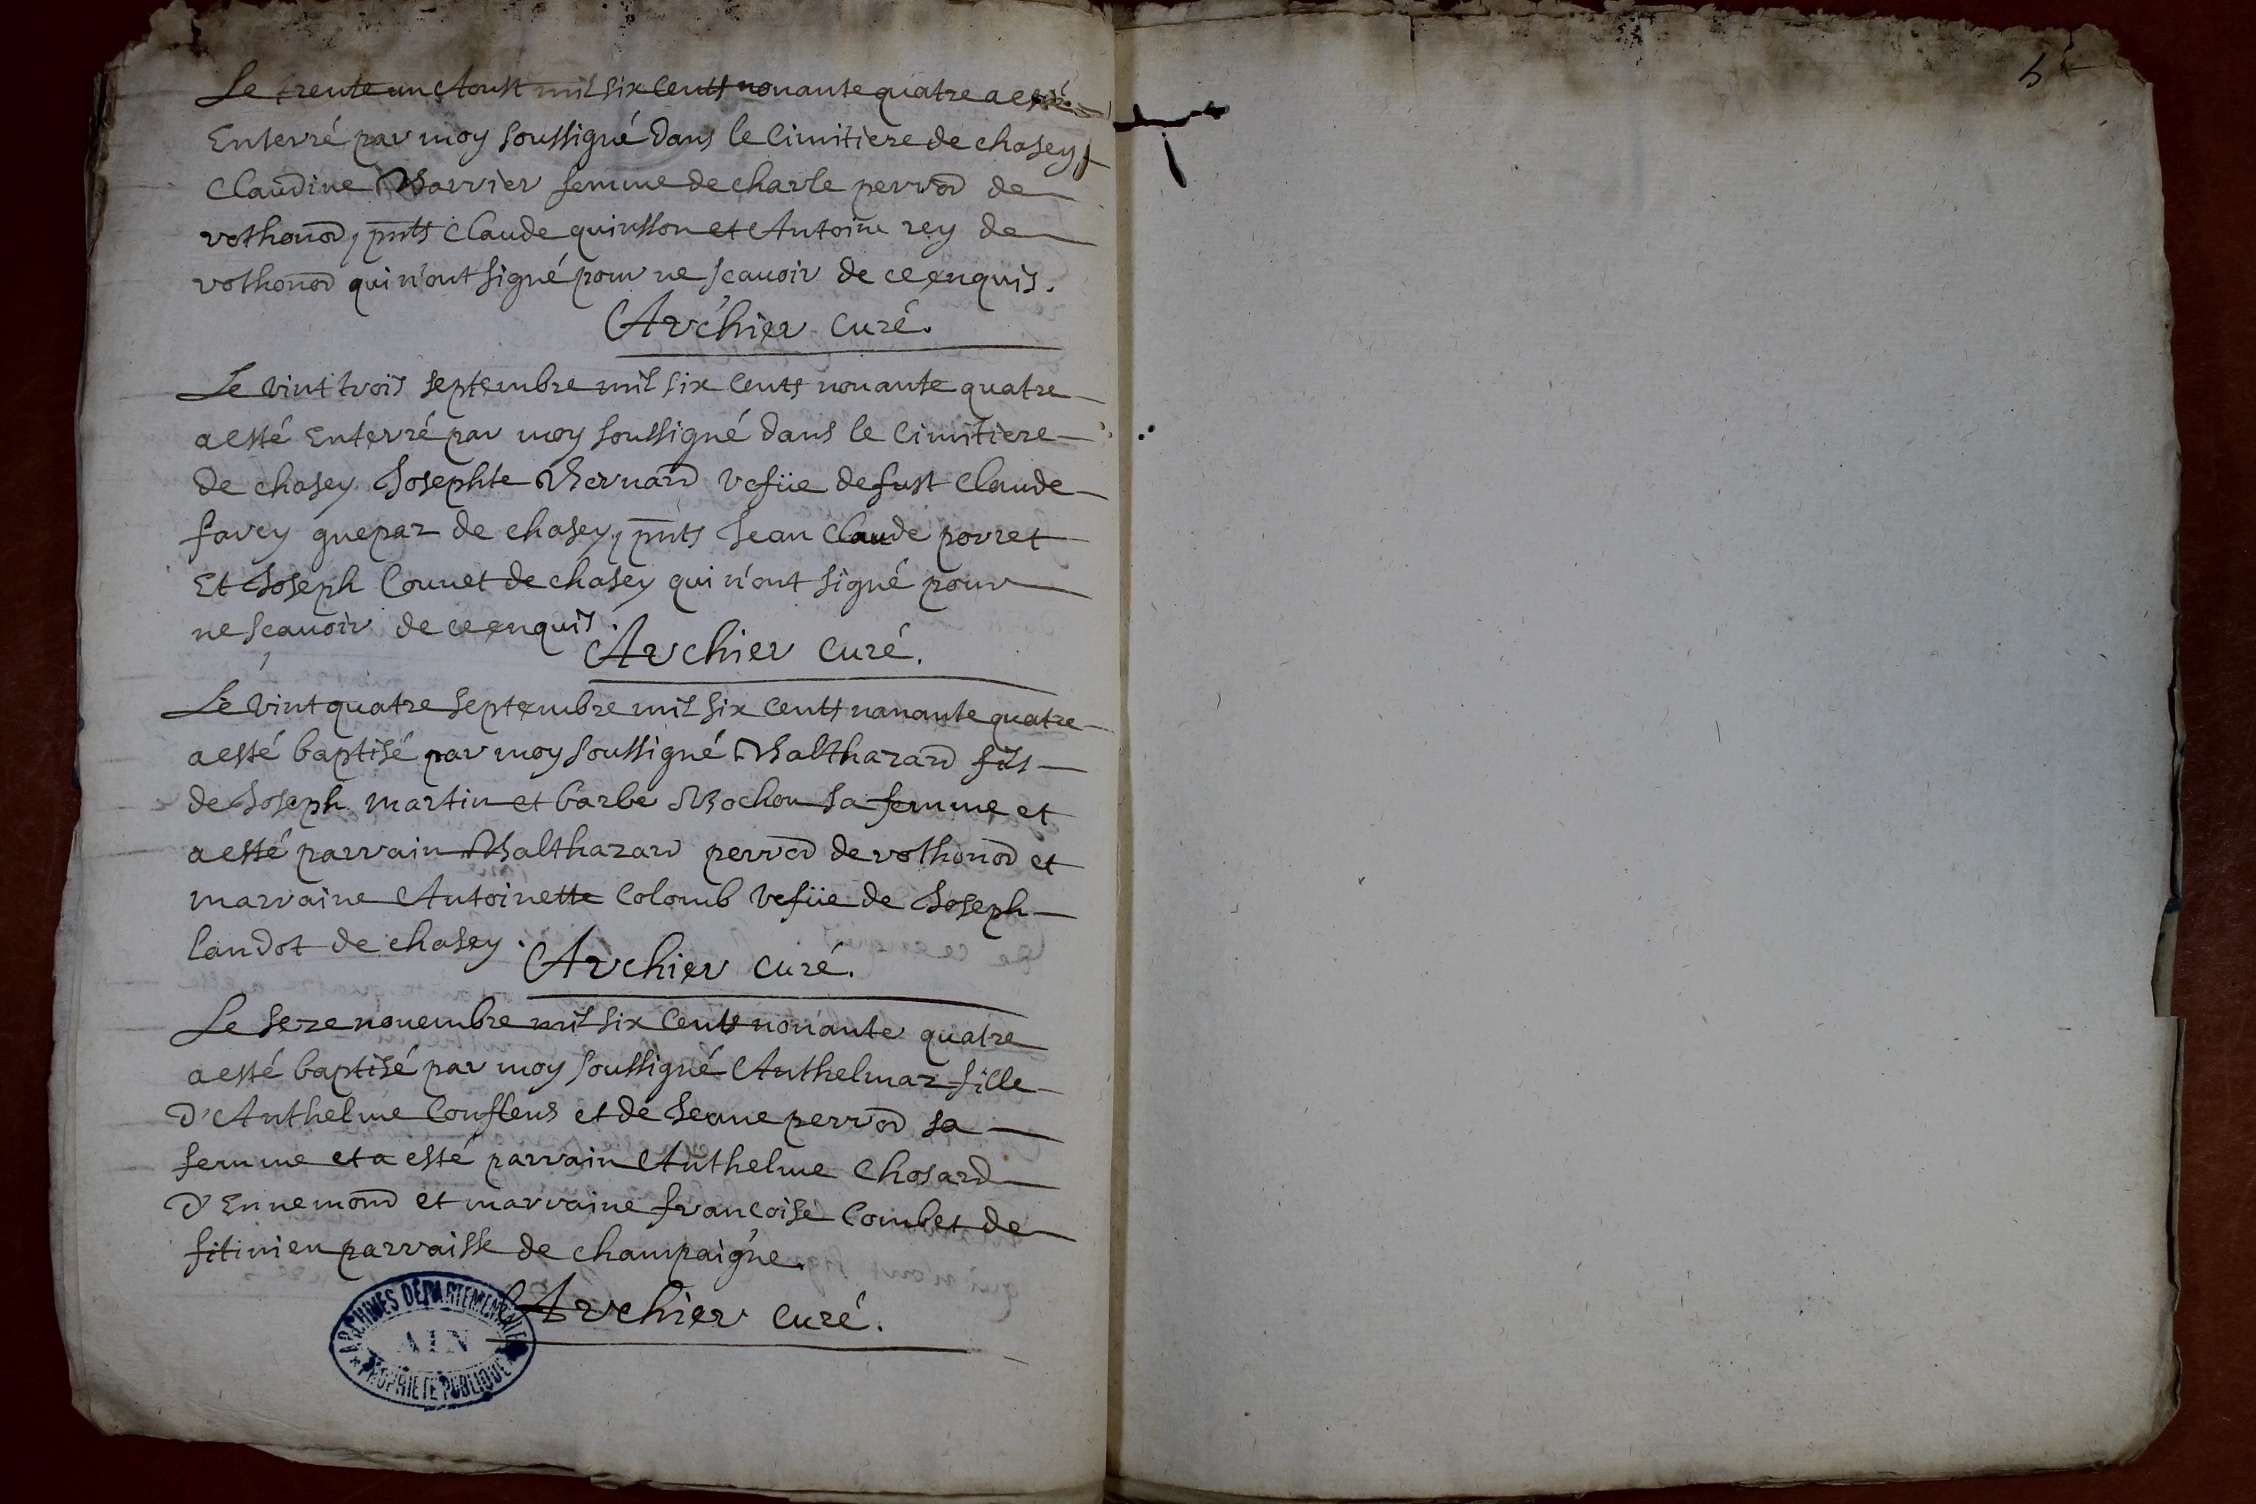 Le trente un Aoust mil six cents nonante quatre a esté
Enterré par moy soussigné dans le Cimitiere de chasey
Claudine Barrier femme de charle perrod de
vothonod, pnts Claude quinsson et Antoine rey de
vothonod qui n'ont signé pour ne scavoir de ce enquis.
Archier curé.
Le vint trois septembre mil six cents nonante quatre
a esté Enterré par moy soussigné dans le Cimitiere
de chasey Josephte Bernard vefüe de fust Claude
favey guepaz de chasey, pnts Jean Claude porret
Et Joseph Convet de chasey qui n'ont signé pour
ne scavoir de ce enquis.
Archier curé.
Le vint quatre septembre mil six cents nonante quatre
a esté baptisé par moy soussigné Balthazard fils
de Joseph martin et barbe Bochon sa femme et
a esté parrain Balthazard perrod de vothonod et
marraine Antoinette Colomb vefüe de Joseph
landot de chasey.
Archier curé.
Le seze novembre mil six cents nonante quatre
a esté baptisé par moy soussigné Anthelmaz fille
d'Anthelme Conflens et de Jeane perrod sa
femme et a esté parrain Anthelme Chosard
d'Ennemond et marraine francoise Combet de
fitinieu parraisse de champaigne.
Archier curé.
ARCHIVES DÉPARTEMENTALES
AIN
PROPRIÉTÉ PUBLIQUE
5